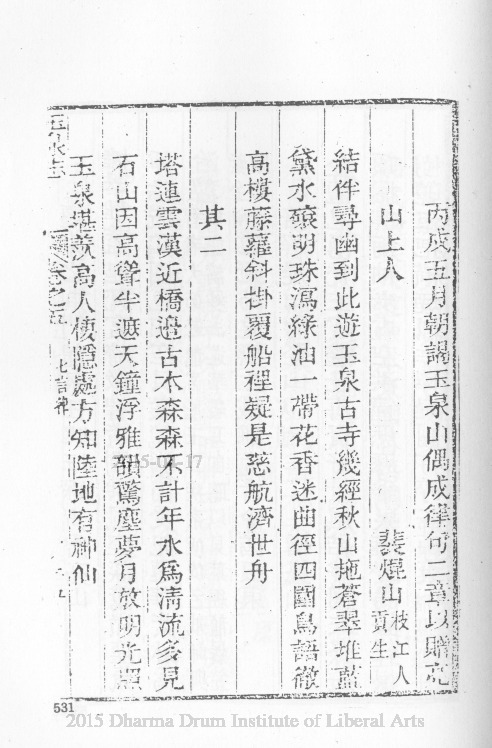 丙戌五月朝謁玉泉山偶成律句二章以贈亮
山上人
裴焜山
枝江人
貢生
結伴尋幽到此遊玉泉古寺幾經秋山拖蒼翠堆藍
黛水滾明珠瀉綠油一帶花香迷曲徑四圍鳥語徹
高樓藤蘿斜掛覆船裡疑是慈航濟世舟
其二
塔連雲漢近橋邊古木森森不計年水爲清流多見
石山因高聳半遮天鐘浮雅韻驚塵夢月放明光照
玉泉堪羨高人棲隱處方知陸地有神仙
玉泉志
卷之五
七言律
531
2015 Dharma Drum Institute of Liberal Arts